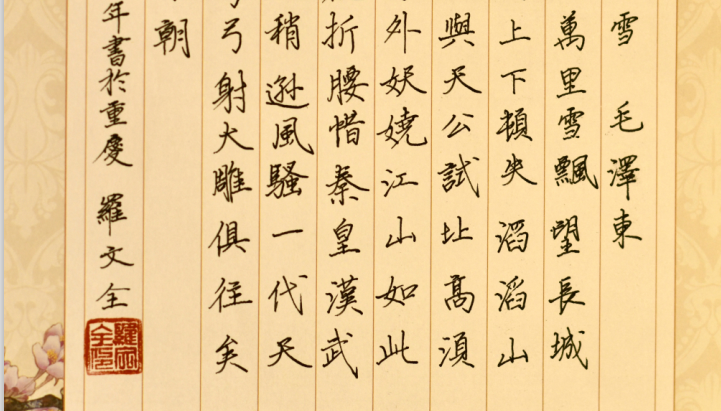 雪 毛澤東
萬里雪飄望長城
上下頓失滔滔山
與天公試比高須
外妖嬈江山如此
折腰惜秦皇漢武
稍遜風騷一代天
弓射大雕俱往矣
朝
年書於重慶 羅文全